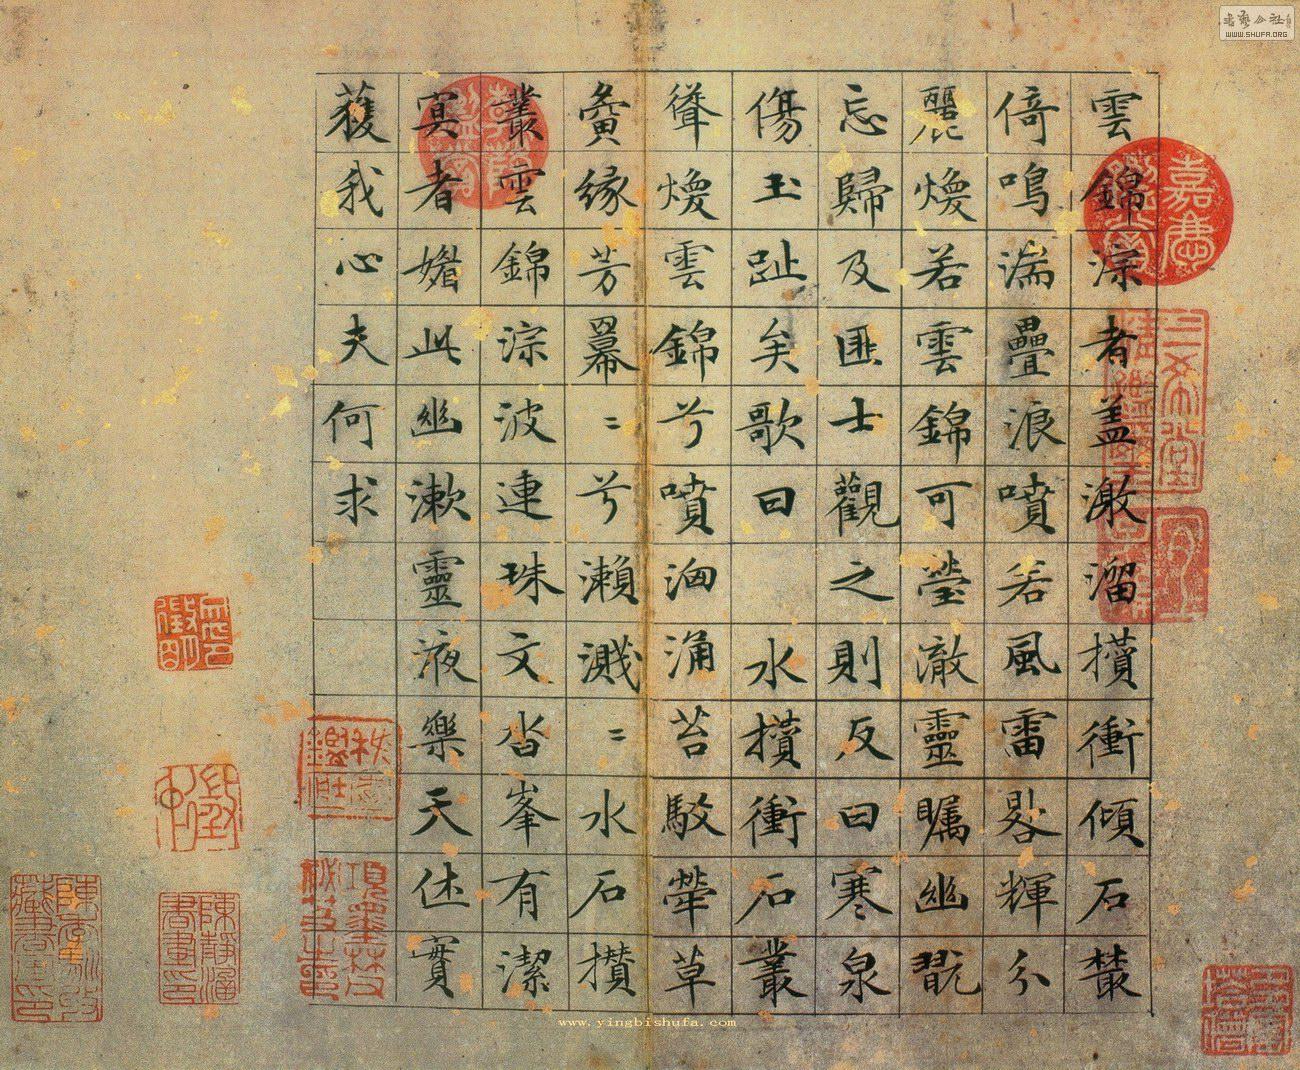 雲錦淙者盖激溜攢衝傾石藂
倚鳴湍疊浪噴若風雷晷輝分
麗煥若雲錦可瑩澈靈矚幽翫
忘歸及匪士觀之則反曰寒泉
傷玉趾矣歌曰 水攢衝石叢
聳煥雲錦兮噴洶涌苔駮犖草
夤緣芳冪〻兮瀨濺〻水石攢
叢雲錦淙波連珠文沓峯有潔
冥者媚此幽漱靈液樂天休實
獲我心夫何求
www.yingbishufa.com
WWW.SHUFA.ORG